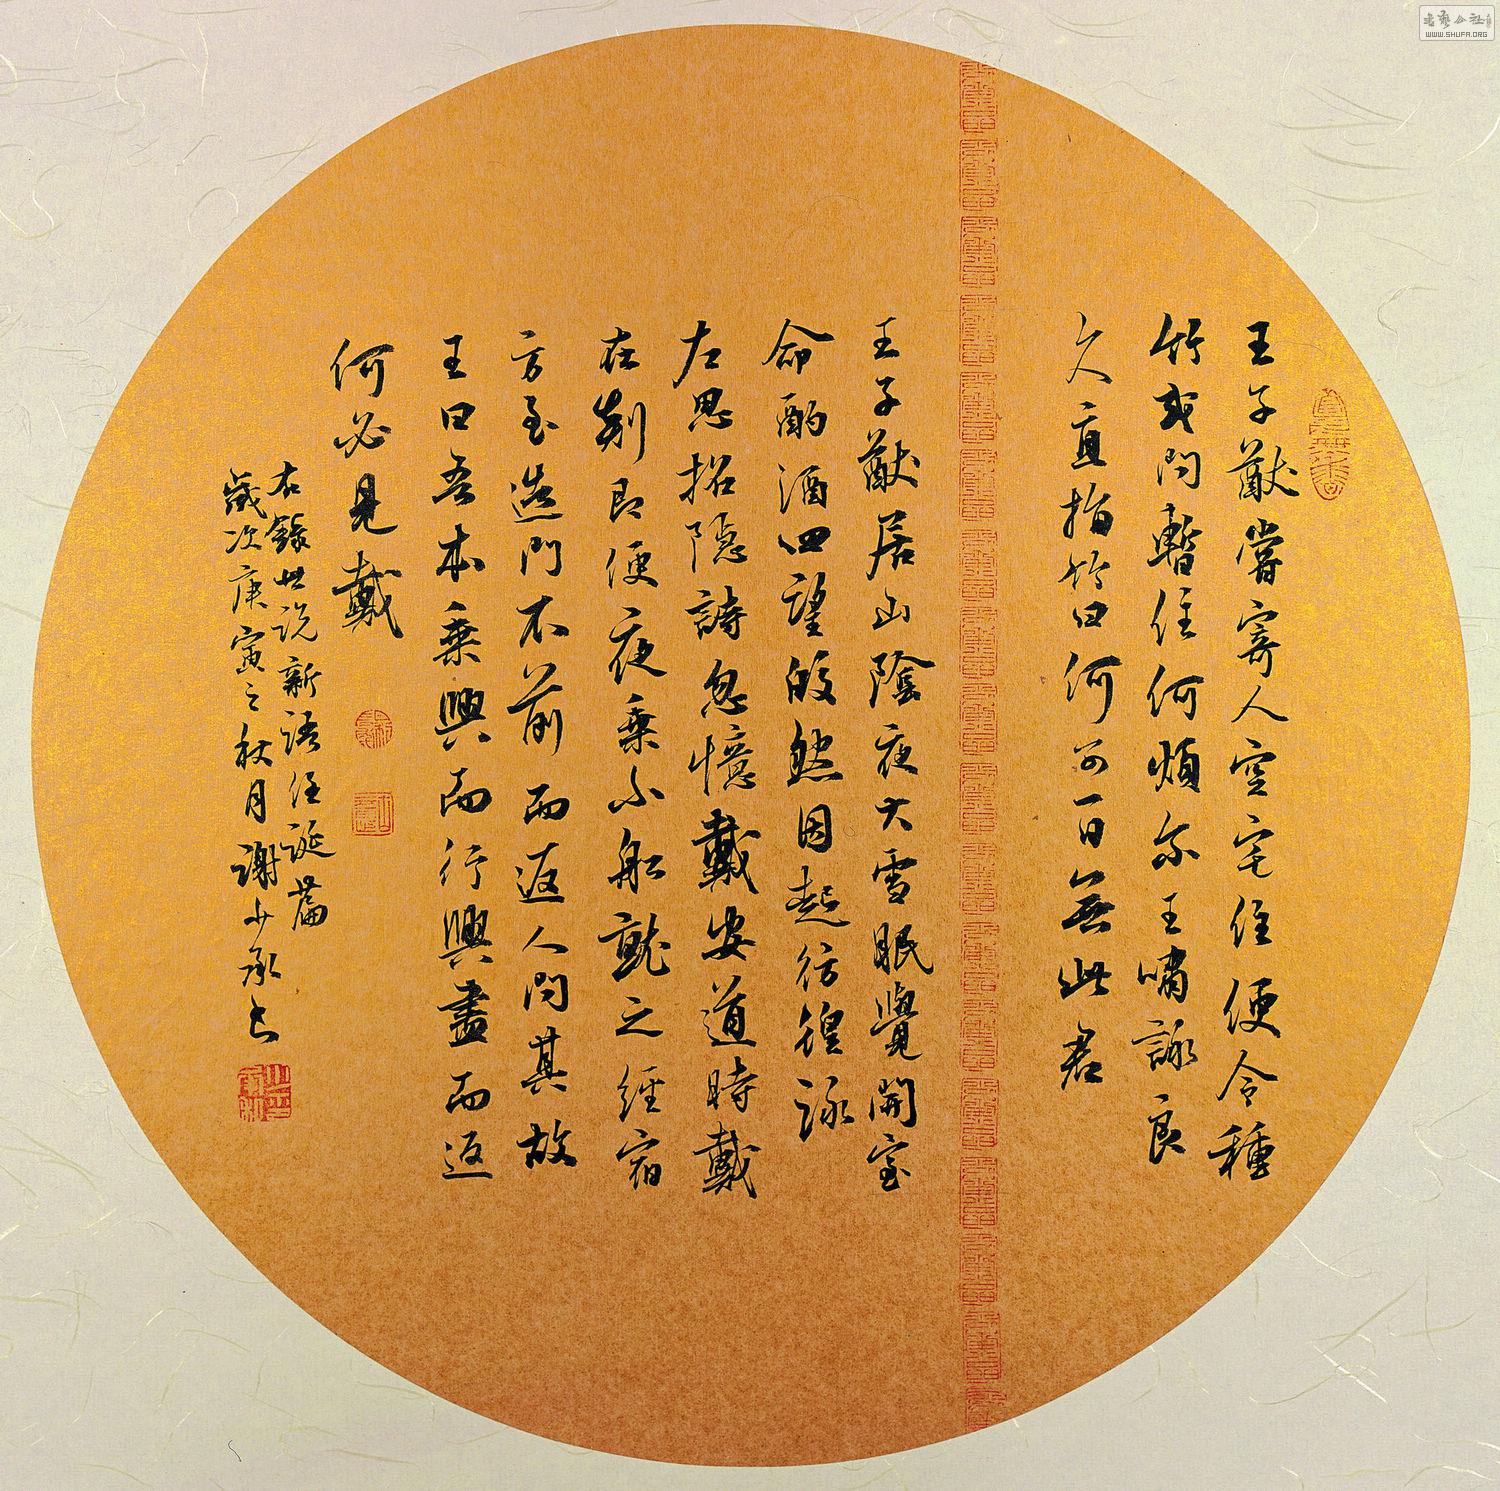 王子猷嘗寄人空宅住便令種
竹或問暫住何煩尔王嘯詠良
久直指竹曰何可一日無此君
王子猷居山陰夜大雪眠覺開室
命酌酒四望皎然因起彷徨詠
左思招隱詩忽憶戴安道時戴
在剡即便夜乘小船就之經宿
方至造門不前而返人問其故
王曰吾本乘興而行興盡而返
何必見戴
右錄世說新語任誕篇
歲次庚寅之秋月謝少承書
書藝公社
WWW.SHUFA.ORG